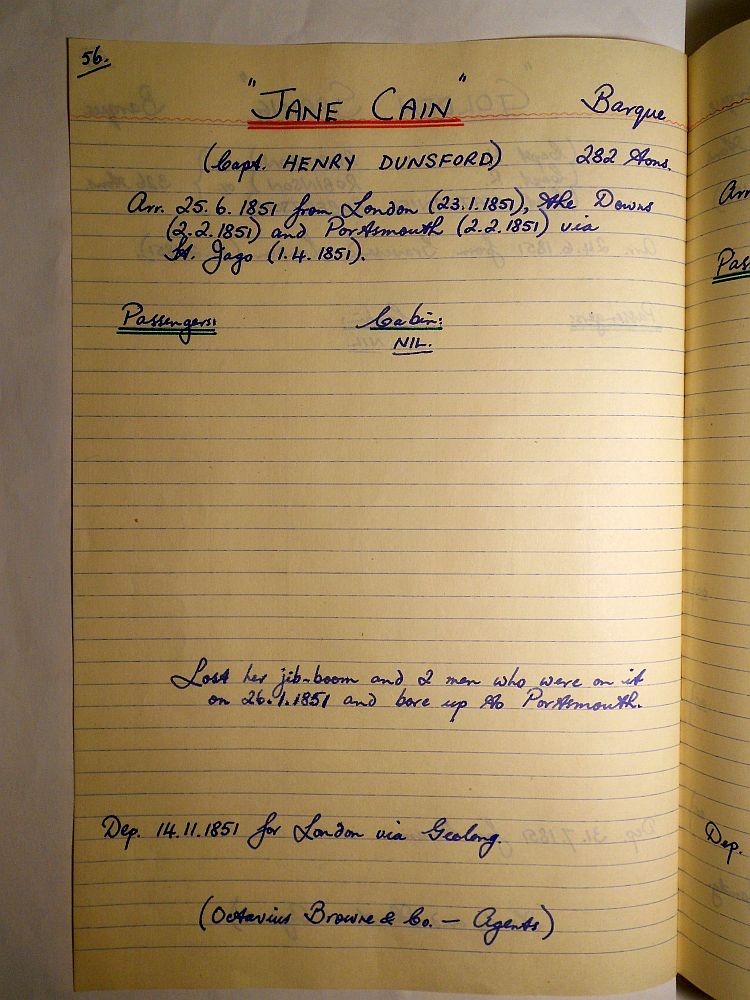 56.
"JANE CAIN" Barque
(Capt. HENRY DUNSFORD) 282 tons.
Arr. 25.6.1851 from London (23.1.1851), the Downs
(2.2.1851) and Portsmouth (2.2.1851) via
St. Jago (1.4.1851).
Passengers: Cabin:
NIL.
Lost her jib-boom and 2 men who were on it
on 26.1.1851 and bore up to Portsmouth.
Dep. 14.11.1851 for London via Geelong.
(Octavius Browne & Co. – Agents)
Arr
Pas
Dep.